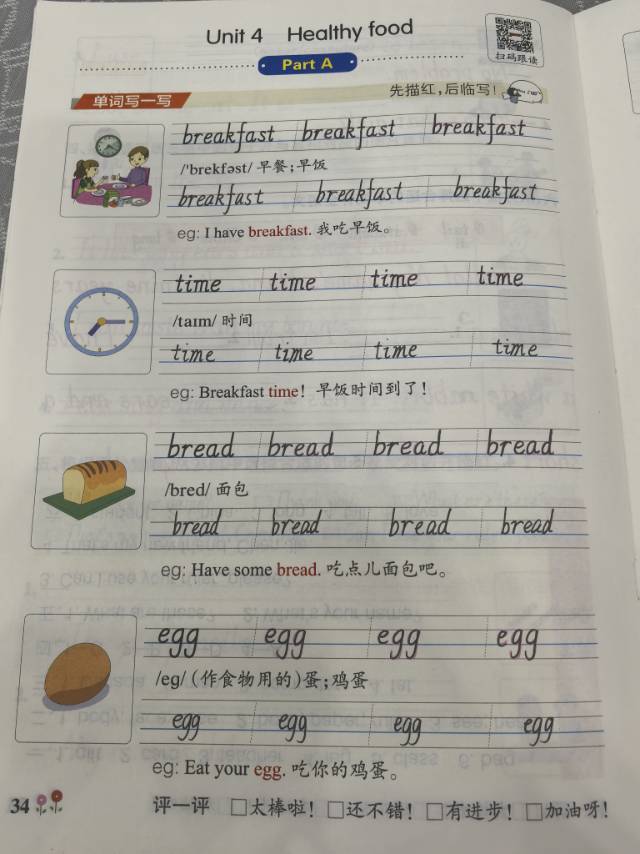 Unit 4 Healthy food
Part A
扫码跟读
单词写一写
先描红,后临写!
breakfast breakfast breakfast
/'brekfəst/ 早餐;早饭
breakfast breakfast breakfast
eg: I have breakfast. 我吃早饭。
time time time time
/taɪm/ 时间
time time time time
eg: Breakfast time! 早饭时间到了!
bread bread bread bread
/bred/ 面包
bread bread bread bread
eg: Have some bread. 吃点儿面包吧。
egg egg egg egg
/eg/ (作食物用的)蛋;鸡蛋
egg egg egg egg
eg: Eat your egg. 吃你的鸡蛋。
34 评一评 □太棒啦! □还不错! □有进步! □加油呀!